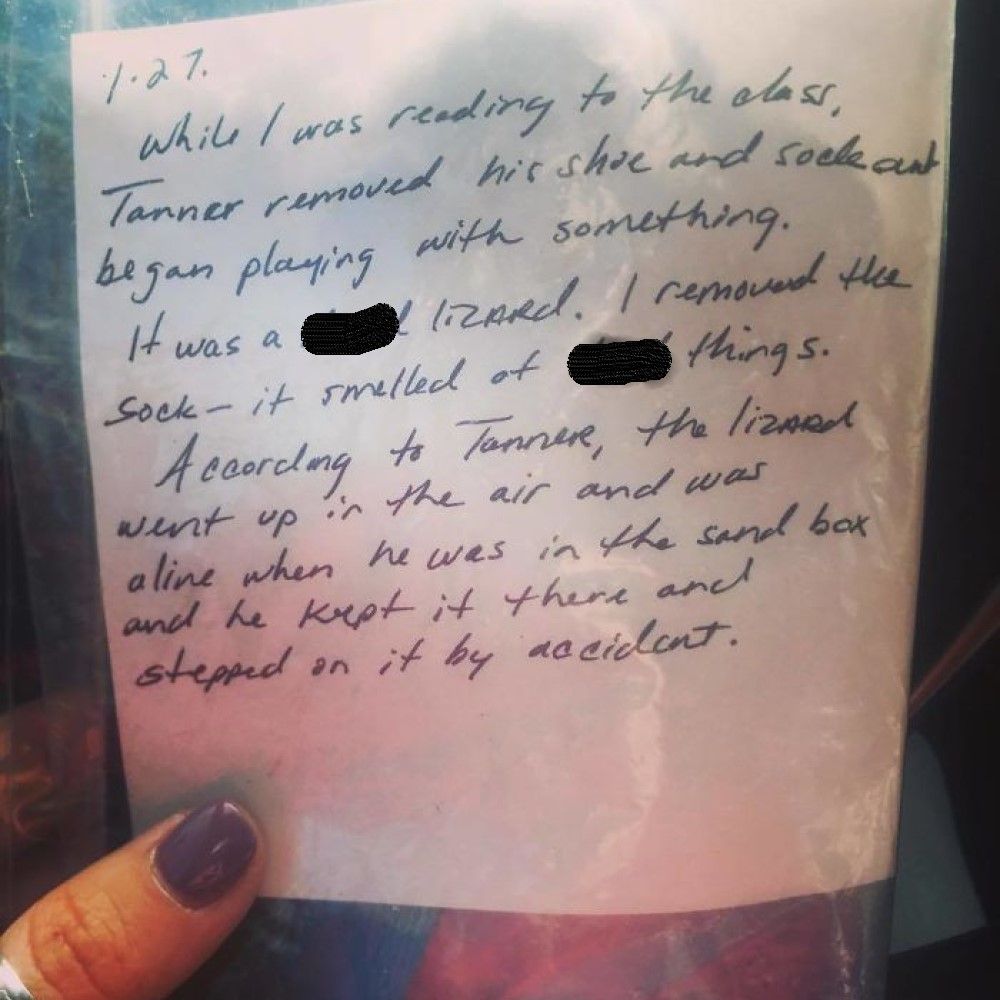 1.27.
While I was reading to the class,
Tanner removed his shoe and sock and
began playing with something.
It was a lizard. I removed the
sock - it smelled of things.
According to Tanner, the lizard
went up in the air and was
aline when he was in the sand box
and he kept it there and
stepped on it by accident.